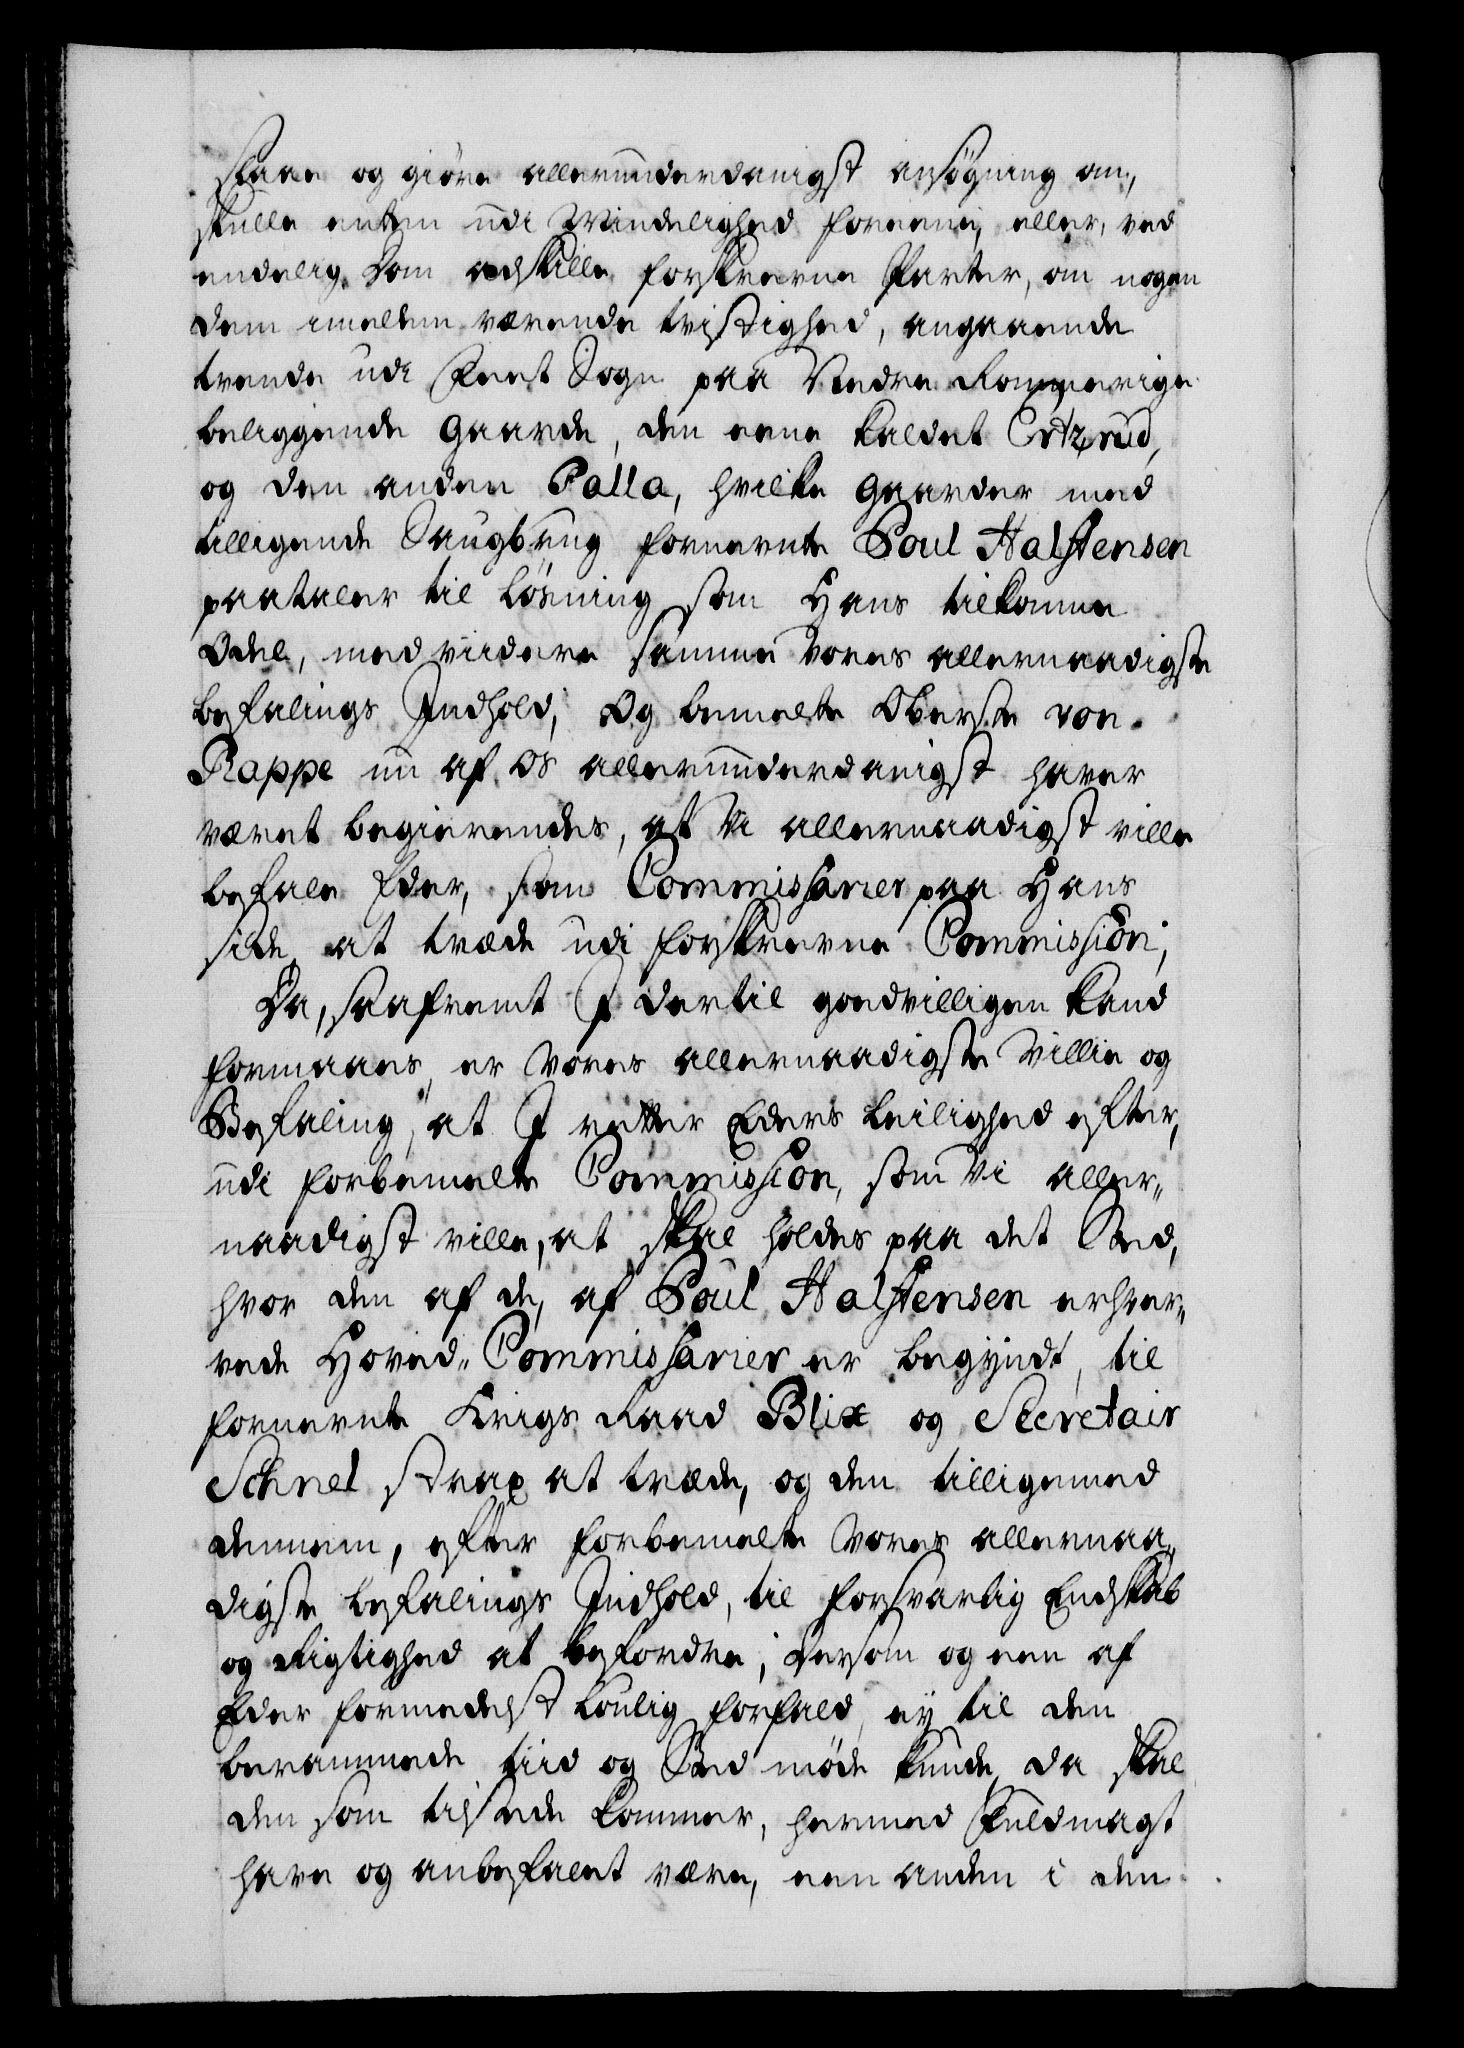 staae og giöre allerunderdanigst ansøgning om,
skulle enten udi Mindelighed foreene, eller, ved
endelig Dom adskille forskrevne Parter, om nogen
dem imellem værende tvistighed, angaaende
tvende udi Feet Sogn paa Nedre Rommerige
beliggende Gaarde, den eene kaldet Ertzrud,
og den anden Palla, hvilke Gaarder med
tilligende Saugbrug fornevnte Poul Halstensen
paataler til løsning som Hans tilkomne
Odel, med viidere samme Vores allernaadigste
befalings Indhold; Og bemelte Oberste von
Rappe nu af Os allerunderdanigst haver
været begierendes, at Vi allernaadigst ville
befale Eder, som Commissarier paa Hans
side, at træde udi forskrevne Commission;
Da, saafremt I dertil goedvilligen kand
formaaes, er Vores allernaadigste Villie og
Befaling, at I retter Eders leilighed efter,
udi forbemelte Commission, som Vi aller„
naadigst ville, at skal holdes paa det Sted,
hvor den af de, af Poul Halstensen erhver„
vede Hoved„Commissarier er begyndt, til
fornevnte Krigs Raad Blix og Secretair
Schnel strax at træde, og den tilligemed
dennem, efter forbemelte Vores allernaa„
digste befalings Indhold, til forsvarlig Endskab
og Rigtighed at befordre; Dersom og een af
Eder formedelst louglig forfald, ey til den
berammede tiid og Sted møde kunde, da skal
den som tilstede kommer, hermed Fuldmagt
have og anbefalet være, een anden i den